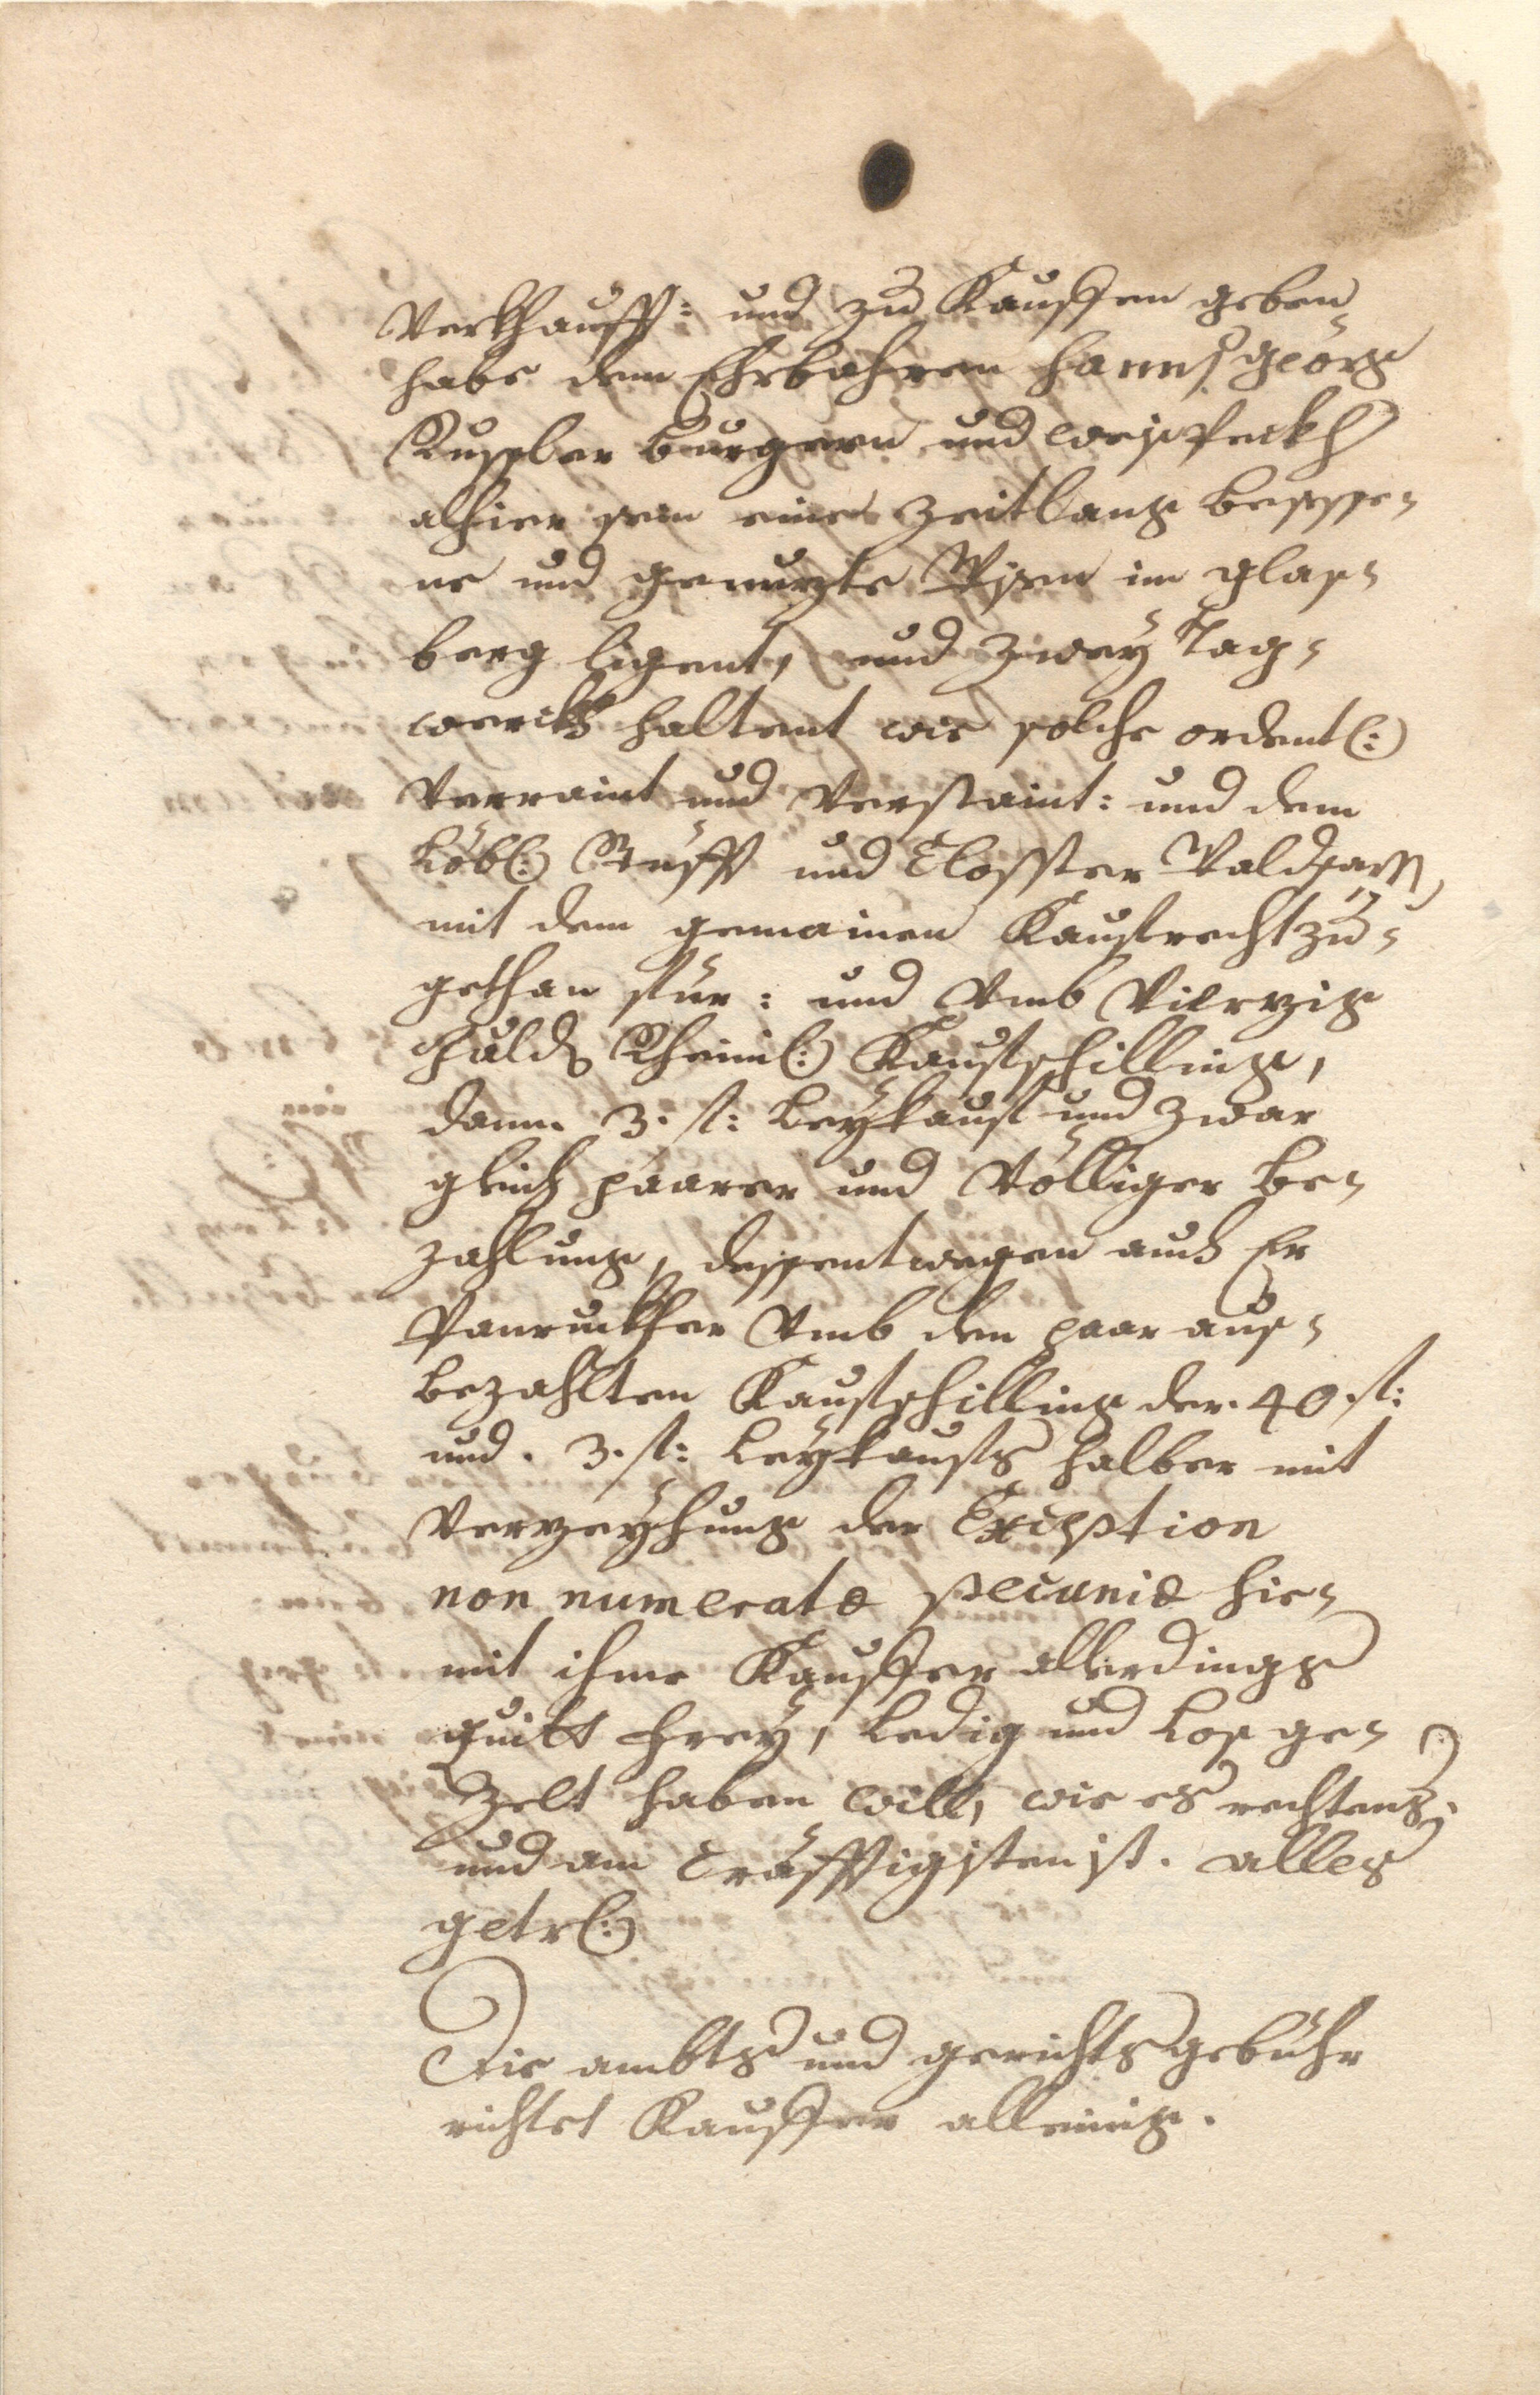 Verkhaufft: und zu Kauffen geben
habe dem Ehrbahren Hannß Georg
Kußler Burgern und weißpeckh
alhier sein eine Zeitlang besesse-
ne und genuzte Wisen im Glaß-
berg ligent, und Zwey Tag-
werckh haltent wie solche ordentl:
verraint und verstaint: und dem
Löbl: Stüfft und Closster Waldsassen
mit dem gemainen Kaufrecht zu-
gethan für: und Vmb Vierzig
Guld Rheinl: Kaufschilling,
dann. 3. fl: Leykauf und Zwar
gleich paarer und Völliger be-
zahlung, dessentwegen auch Er
Vmb den paar auß-
bezahlten Kaufschilling der. 40. fl:
und. 3. fl: Leykaufs halber mit
Verzeyhung der Exception
non numeratæ pecuniæ hie-
mit ihme Kauffer allerdings
quitt frey, Ledig und Loß ge-
Zelt haben will, wie es rechtens
und am Cräfftigisten ist. alles
getrl:
Die ambts und gerichtsgebühr
richtet Kauffer alleinig.